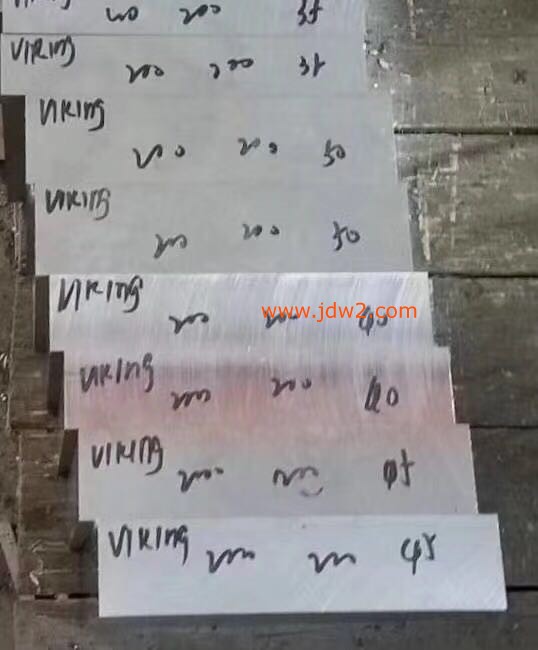 200 200 35
VIKING 200 200 35
VIKING 200 200 50
VIKING 200 200 50
VIKING 200 200 40
www.jdw2.com
VIKING 200 200 40
VIKING 200 200 45
VIKING 200 200 45